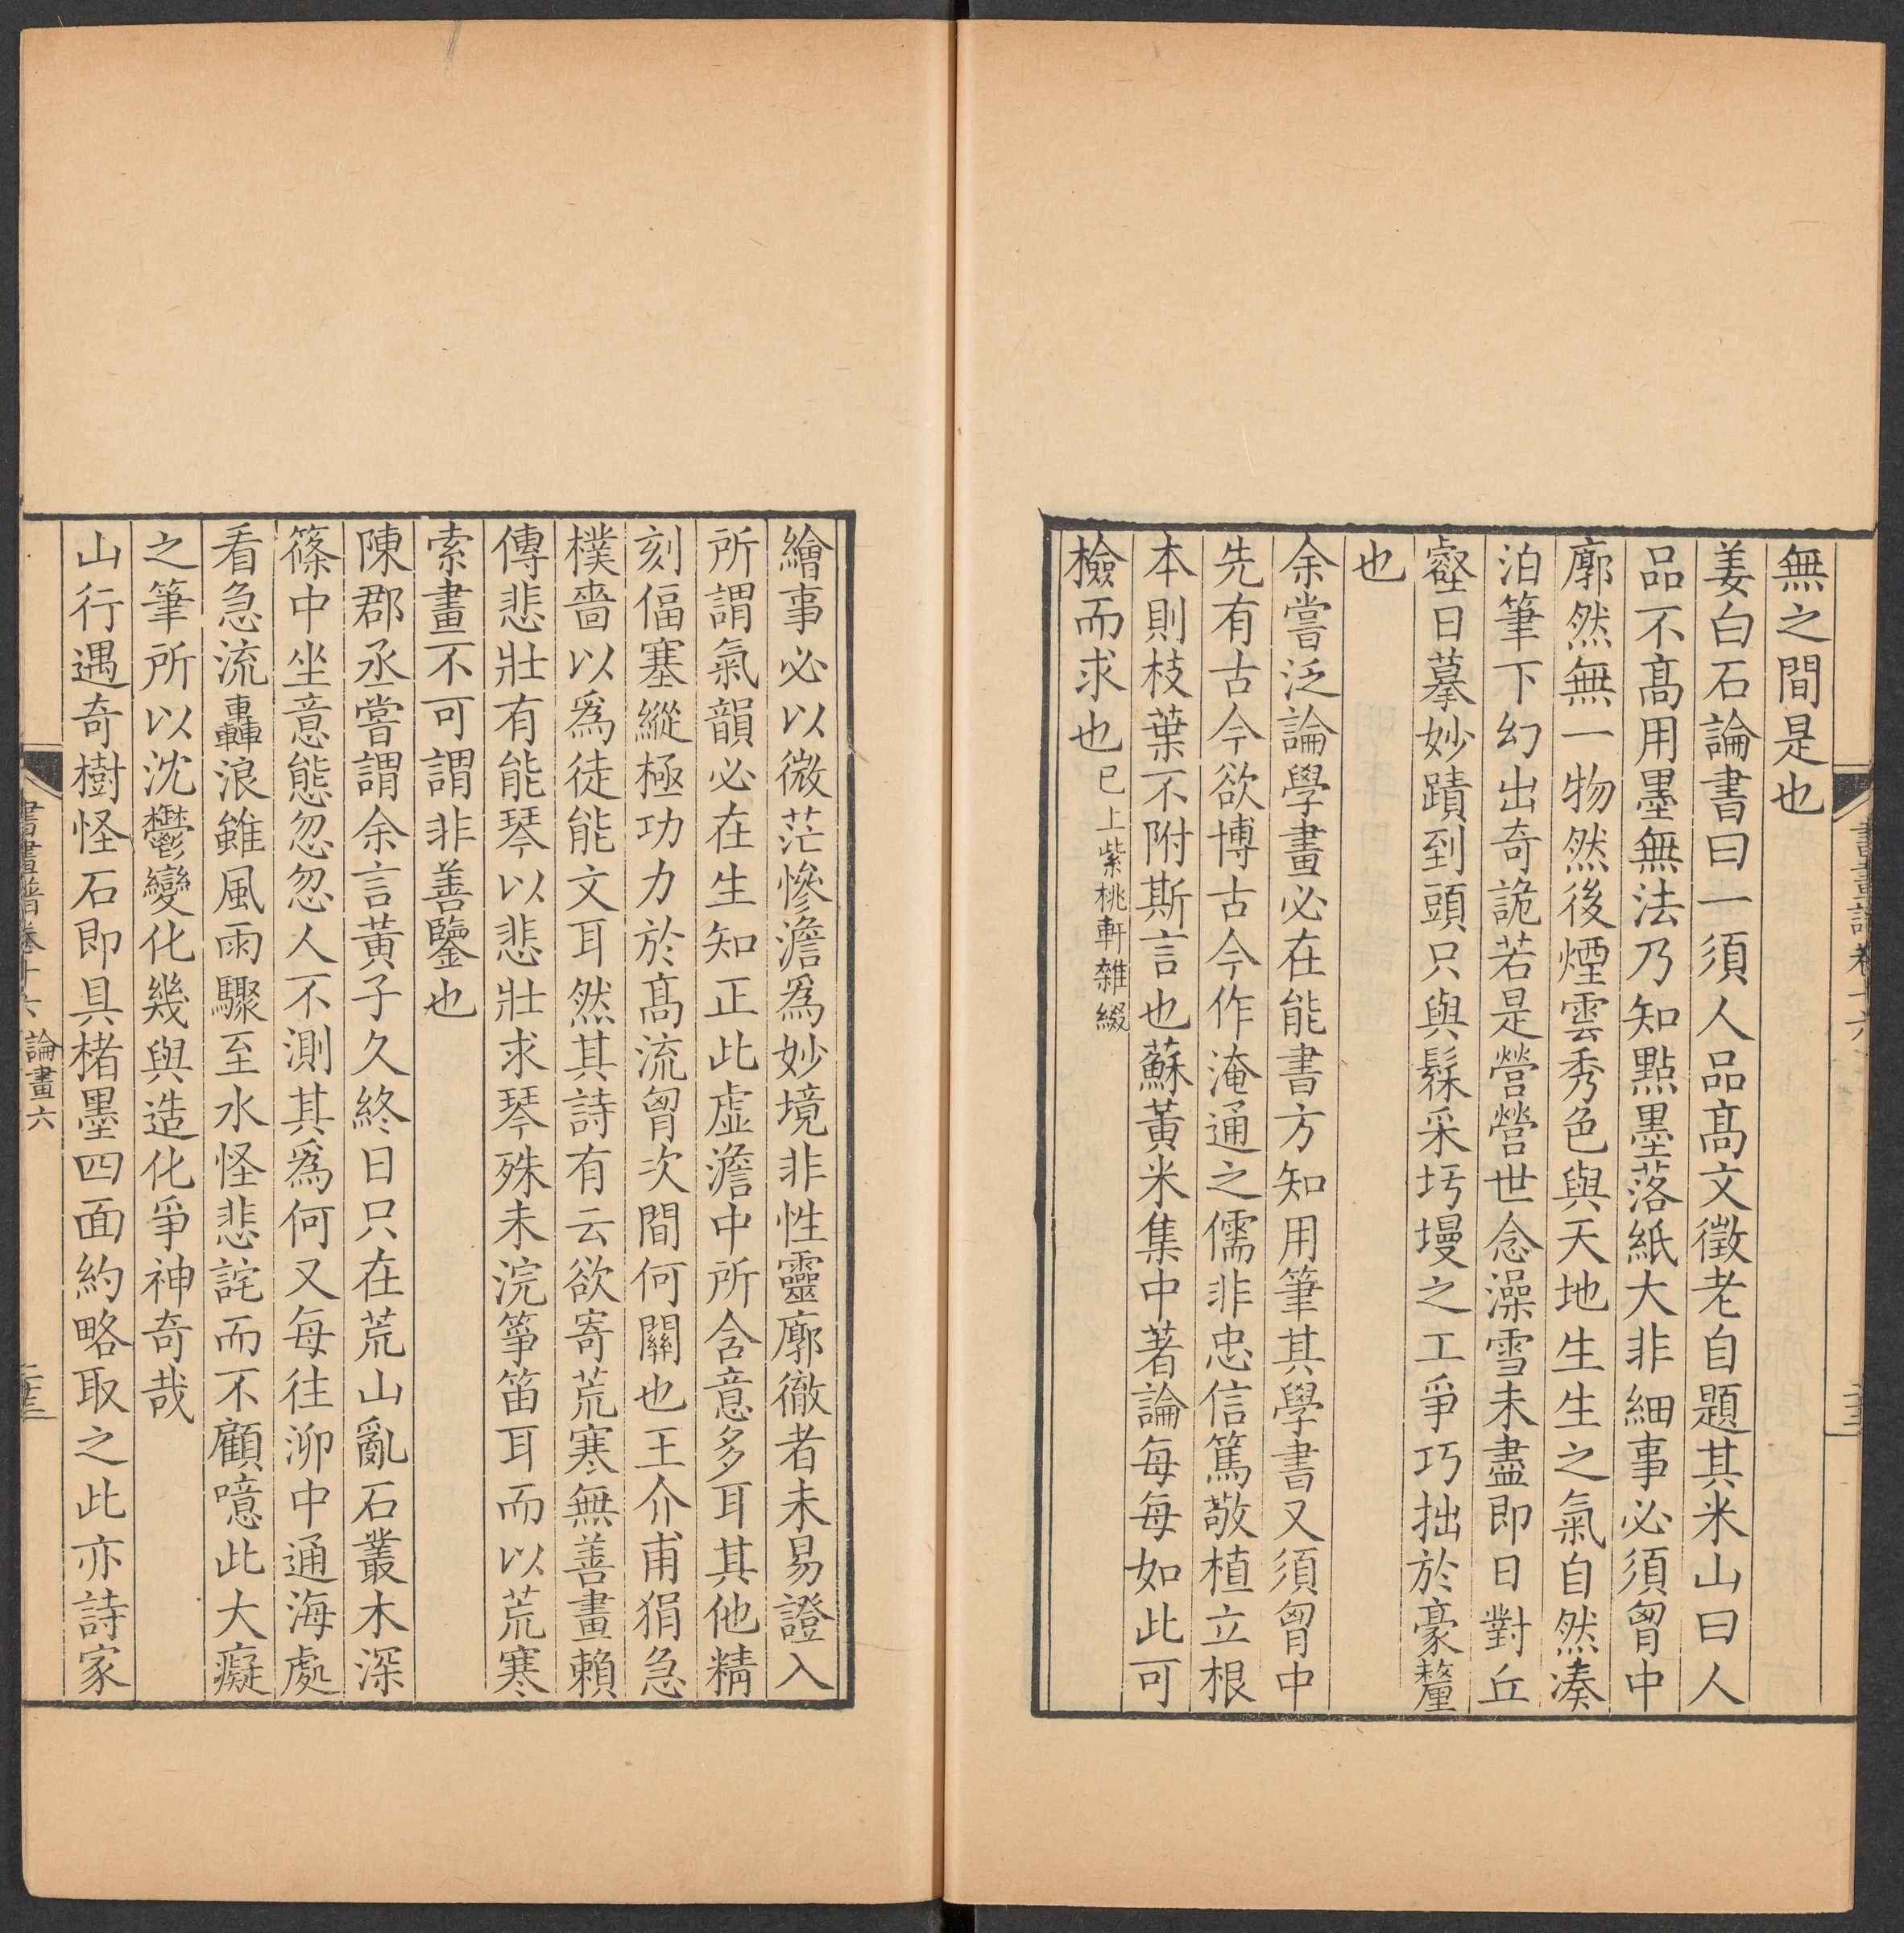 無之間是也
姜白石論書曰一須人品高文徵老自題其米山曰人
品不高用墨無法乃知點墨落紙大非細事必須胷中
廓然無一物然後煙雲秀色與天地生生之氣自然湊
泊筆下幻出奇詭若是營營世念澡雪未盡即日對丘
壑日摹妙蹟到頭只與髹采圬墁之工爭巧拙於豪釐
也
余嘗泛論學畫必在能書方知用筆其學書又須胷中
先有古今欲博古今作淹通之儒非忠信篤敬植立根
本則枝葉不附斯言也蘇黃米集中著論每每如此可
檢而求也 已上紫桃軒雜綴
繪事必以微茫慘澹為妙境非性靈廓徹者未易證入
所謂氣韻必在生知正此虛澹中所含意多耳其他精
刻偪塞縱極功力於高流胷次間何關也王介甫狷急
樸嗇以為徒能文耳然其詩有云欲寄荒寒無善畫賴
傳悲壯有能琴以悲壯求琴殊未浣箏笛耳而以荒寒
索畫不可謂非善鑒也
陳郡丞嘗謂余言黃子久終日只在荒山亂石叢木深
篠中坐意態忽忽人不測其為何又每往泖中通海處
看急流轟浪雖風雨驟至水怪悲詫而不顧噫此大癡
之筆所以沈鬱變化幾與造化爭神奇哉
山行遇奇樹怪石即具楮墨四面約略取之此亦詩家
書畫譜卷十六 論畫六